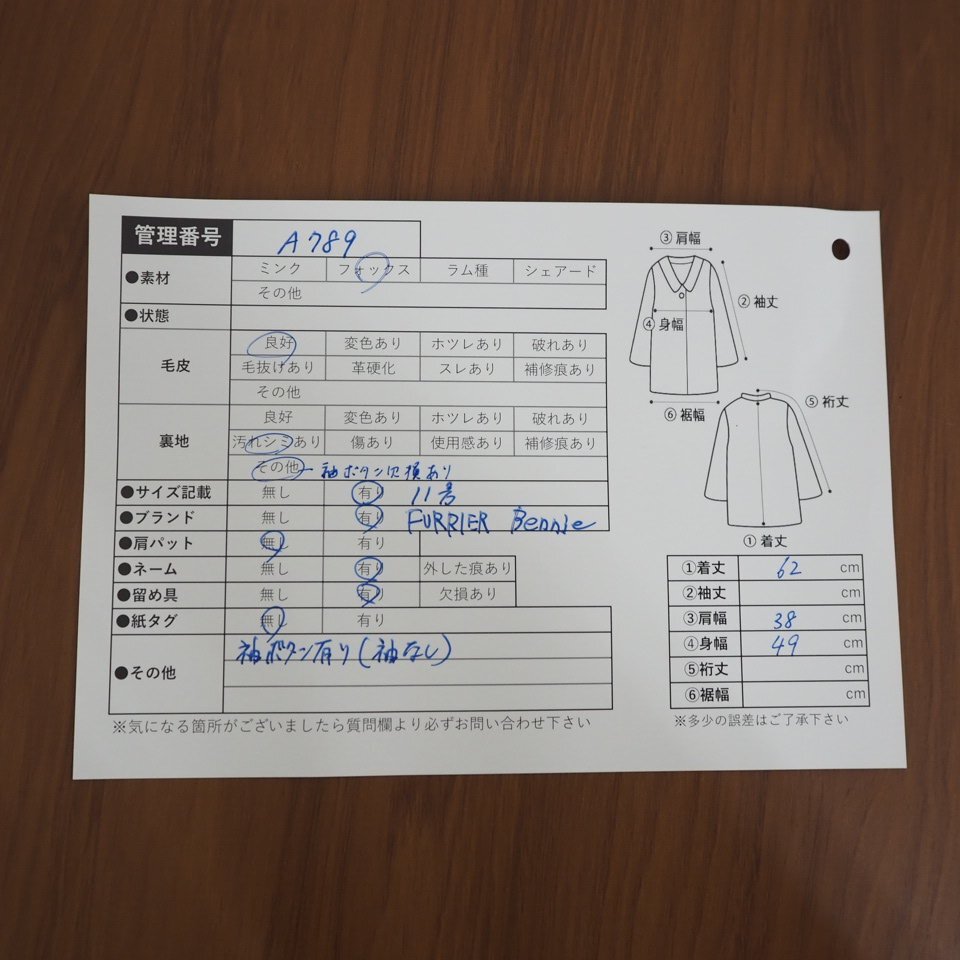 管理番号 A789
●素材 ミンク フォックス ラム種 シェアード
その他
●状態
毛皮 良好 変色あり ホツレあり 破れあり
毛抜けあり 革硬化 スレあり 補修痕あり
その他
裏地 良好 変色あり ホツレあり 破れあり
汚れシミあり 傷あり 使用感あり 補修痕あり
その他 - 袖ボタン欠損あり
●サイズ記載 無し 有り 11号
●ブランド 無し 有り FURRIER Bennie
●肩パット 無し 有り
●ネーム 無し 有り 外した痕あり
●留め具 無し 有り 欠損あり
●紙タグ 無し 有り
●その他 袖ボタン有り(袖なし)
※気になる箇所がございましたら質問欄より必ずお問い合わせ下さい
③肩幅
②袖丈
④身幅
⑥裾幅
⑤裄丈
①着丈
①着丈 62 cm
②袖丈 cm
③肩幅 38 cm
④身幅 49 cm
⑤裄丈 cm
⑥裾幅 cm
※多少の誤差はご了承下さい